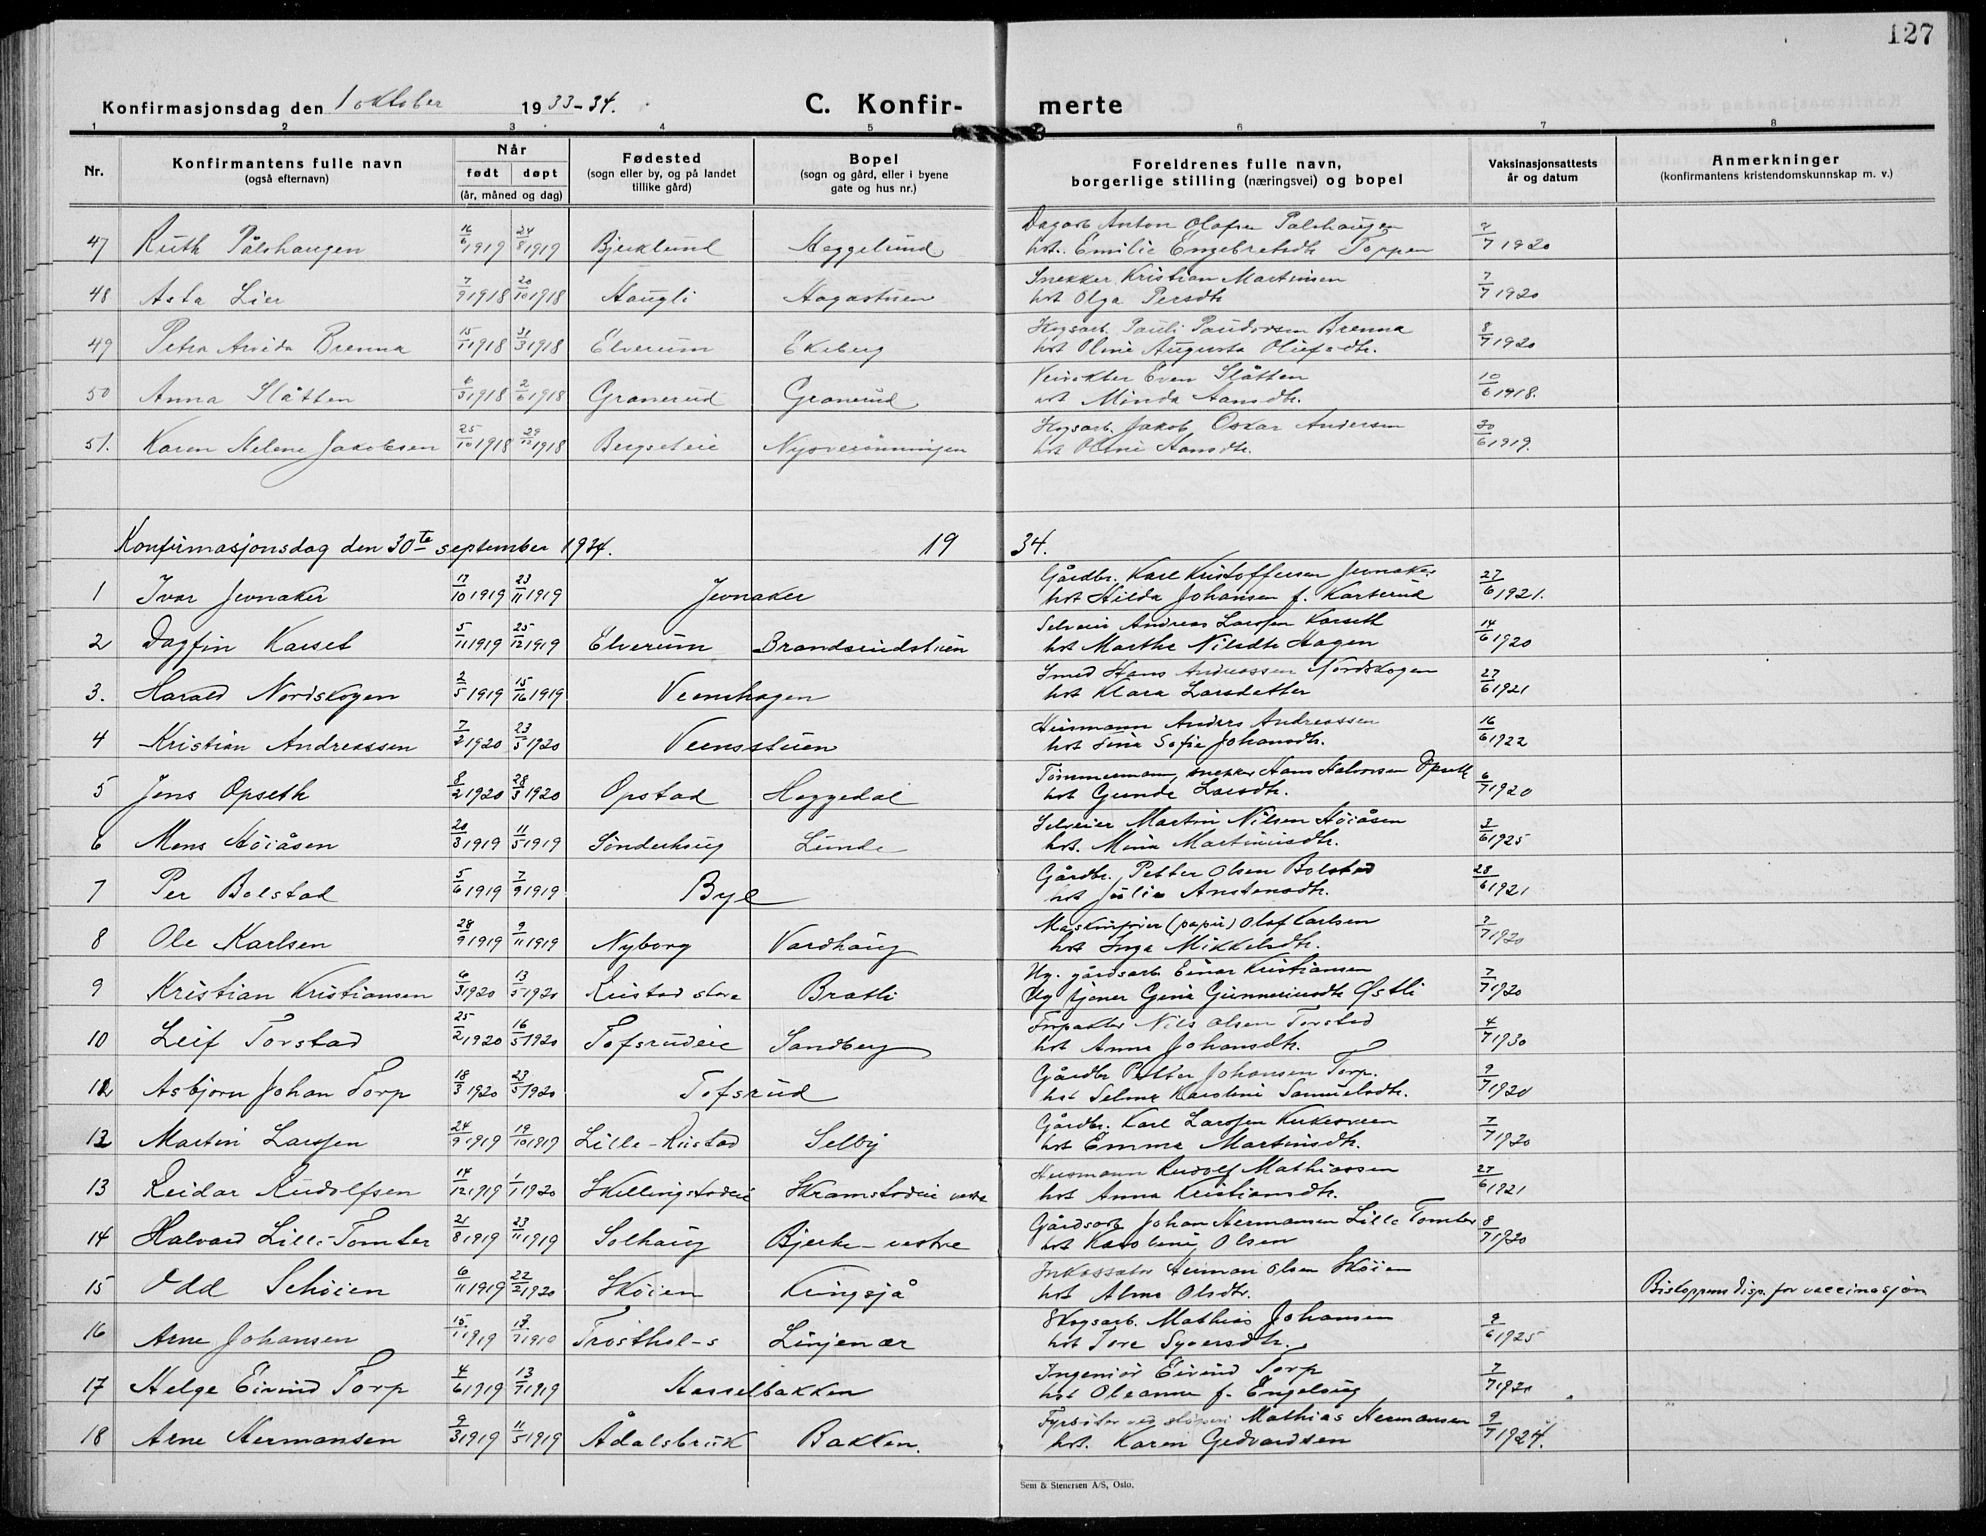 127
Konfirmasjonsdag den 1 oktober 1933-34. C. Konfir- merte
1 2 3 4 5 6 7 8
Nr. Konfirmantens fulle navn (også efternavn) Når født døpt (år, måned og dag) Fødested (sogn eller by, og på landet tillike gård) Bopel (sogn og gård, eller i byene gate og hus nr.) Foreldrenes fulle navn, borgerlige stilling (næringsvei) og bopel Vaksinasjonsattests år og datum Anmerkninger (konfirmantens kristendomskunnskap m. v.)
47 Ruth Pålshaugen 16/6 1919 24/8 1919 Bjerklund Heggelund Dagarb Anton Olafsen Pålshaugen
hst. Emilie Engebretsdtr Toppen 7/7 1920
48 Asta Lier 7/9 1918 20/10 1918 Haugli Hagastuen Snekker Kristian Martinsen
hst Olga Persdtr 7/7 1920
49 Petra Arvida Brenna 15/1 1918 31/3 1918 Elverum Ekeberg Skogsarb. Pauli Paudorsen Brenna
hst Oline Augusta Olufsdtr. 8/7 1920
50 Anna Slåtten 6/3 1918 2/6 1918 Granerud Granerud Veivokter Even Slåtten
hst Minda Hansdtr. 10/6 1918.
51. Karen Helene Jakobsen 25/10 1918 29/12 1918 Bergseteie Nysverønningen Skogsarb. Jakob Oskar Andersen
hst Oline Hansdtr. 30/6 1919.
Konfirmasjonsdag den 30te september 1934. 19 34.
1 Ivar Jevnaker 17/10 1919 23/11 1919 Jevnaker Gårdbr. Karl Kristoffersen Jevnaker
hst Hilda Johansen f. Karterud 27/6 1921.
2 Dagfin Karset 5/11 1919 25/12 1919 Elverum Brandsrudstuen Selveier Andreas Larssen Karseth
hst Marthe Nilsdtr Hagen 14/6 1920
3. Harald Nordskogen 2/5 1919 15/16 1919 Veenshagen Smed Hans Andreassen Nordskogen
hst Klara Larsdatter 27/6 1921
4 Kristian Andreassen 7/2 1920 23/5 1920 Veensstuen Husmann Anders Andreassen
hst Sina Sofie Johansdtr. 16/6 1922
5 Jens Opseth 8/2 1920 28/3 1920 Opstad Heggedal Tømmermann, snekker Hans Halvorsen Opseth
hst Gunda Larsdtr. 6/7 1920
6 Mons Høiåsen 20/3 1919 11/5 1919 Sønderhaug Lunde Selveier Martin Nilsen Høiåsen
hst. Mina Martiniusdtr. 3/6 1925
7 Per Bolstad 5/6 1919 7/9 1919 Byl Gårdbr. Petter Olsen Bolstad
hst Julie Anstensdtr. 28/6 1921
8 Ole Karlsen 28/9 1919 9/11 1919 Nyborg Vardhaug Maskinfører (papir) Olaf Karlsen
hst Inga Mikkelsdtr. 7/7 1920
9 Kristian Kristiansen 6/3 1920 13/5 1920 Rustad store Bratli Ug. gårdsarb Einar Kristiansen
Ug tjener Gina Gunneriusdtr Østli 7/7 1920
10 Leif Torstad 25/2 1920 16/5 1920 Tofsrudeie Sandberg Forpakter Nils Olsen Torstad
hst Anna Johansdtr. 4/7 1930
11 Asbjørn Johan Torp 18/3 1920 23/5 1920 Tofsrud Gårdbr Petter Johansen Torp.
hst Selma Karoline Samuelsdtr. 9/7 1920
12 Martin Larssen 24/9 1919 19/10 1919 Lille-Rustad Selby Gårdbr. Karl Larssen Kirkesveen
hst Emma Martinsdtr. 7/7 1920
13 Reidar Rudolfsen 14/12 1919 1/1 1920 Skillingstadeie Skramstadeie vestre Husmann Rudolf Mathiassen
hst Anna Kristiansdtr. 27/6 1921
14 Halvard Lille-Tomter 21/8 1919 23/11 1919 Solhaug Bjerke-vestre Gårdsarb Johan Hermansen Lille Tomter
hst Karoline Olsen 8/7 1920
15 Odd Schøien 6/11 1919 22/2 1920 Skøien Kingsjå Inkassator Herman Olsen Skøien
hst Alma Olsdtr. Biskoppens disp. for vaccinasjon
16 Arne Johansen 15/1 1919 13/7 1919 Trosthol-s Linjenær Skogsarb. Mathias Johansen
hst Tora Syversdtr. 9/6 1925
17 Helge Eivind Torp 4/6 1919 13/7 1919 Hasselbakken Ingeniør Eivind Torp
hst Oleanna f. Engelsug 7/7 1920
18 Arne Hermansen 9/3 1919 11/5 1919 Ådalsbruk Bakken. Fyrbøter ved støperi Mathias Hermansen
hst. Karen Gedvardsen 9/7 1924.
Sem & Stenersen A/S, Oslo.